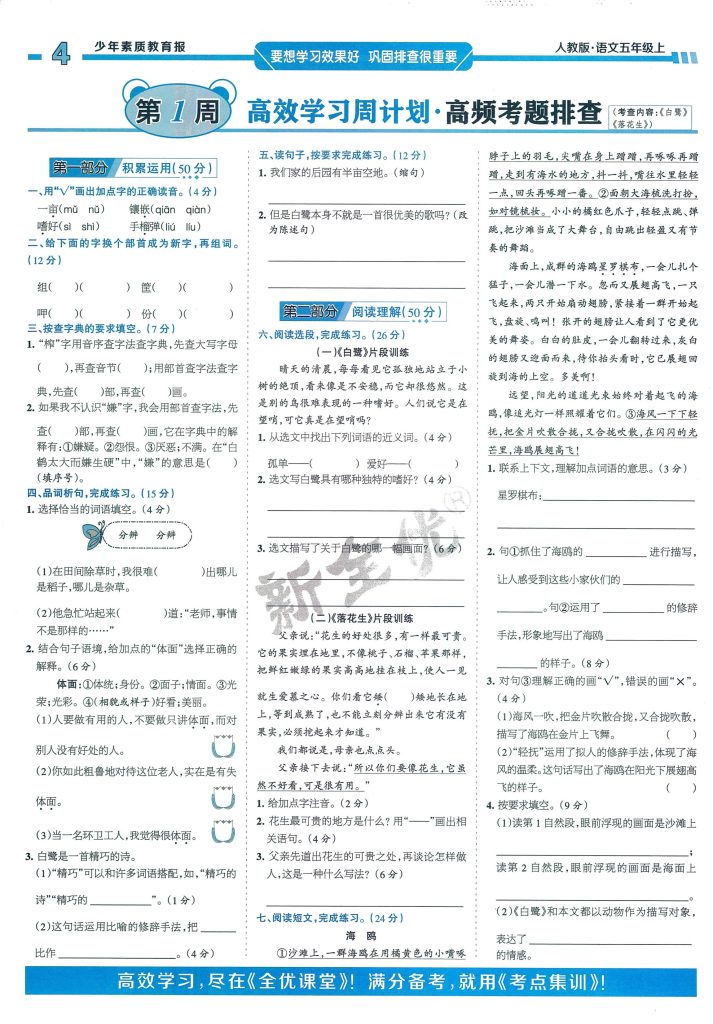 4
少年素质教育报
要想学习效果好 巩固排查很重要
人教版·语文五年级上
第1周
高效学习周计划·高频考题排查
(考查内容:《白鹭》
《落花生》)
第一部分 积累运用(50分)
一、用“√”画出加点字的正确读音。(4分)
一亩(mǔ nǔ) 镶嵌(qiān qiàn)
嗜好(sì shì) 手榴弹(liú líu)
二、给下面的字换个部首成为新字,再组词。
(12分)
组( )( ) 筐( )( )
呷( )( ) 份( )( )
三、按查字典的要求填空。(7分)
1. “榨”字用音序查字法查字典,先查大写字母
( ),再查音节( );用部首查字法查字
典,先查( )部,再查( )画。
2. 如果我不认识“嫌”字,我会用部首查字法,先
查( )部,再查( )画,它在字典中的解
释有:①嫌疑。②怨恨。③厌恶;不满。在“白
鹤太大而嫌生硬”中,“嫌”的意思是( )
(填序号)。
四、品词析句,完成练习。(15分)
1. 选择恰当的词语填空。(4分)
分辨 分辩
(1)在田间除草时,我很难( )出哪儿
是稻子,哪儿是杂草。
(2)他急忙站起来( )道:“老师,事情
不是那样的……”
2. 结合句子语境,给加点的“体面”选择正确的
解释。(6分)
体面:①体统;身份。②面子;情面。③光
荣;光彩。④(相貌或样子)好看;美丽。
(1)人要做有用的人,不要做只讲体面,而对
别人没有好处的人。
(2)你如此粗鲁地对待这位老人,实在是有失
体面。
(3)当一名环卫工人,我觉得很体面。
3. 白鹭是一首精巧的诗。
(1)“精巧”可以和许多词语搭配,如,“精巧的
诗”“精巧的 ”。(1分)
(2)这句话运用比喻的修辞手法,把
比作 。(4分)
五、读句子,按要求完成练习。(12分)
1. 我们家的后园有半亩空地。(缩句)
2. 但是白鹭本身不就是一首很优美的歌吗?(改
为陈述句)
第二部分 阅读理解(50分)
六、阅读选段,完成练习。(26分)
(一)《白鹭》片段训练
晴天的清晨,每每看见它孤独地站立于小
树的绝顶,看来像是不安稳,而它却很悠然。这
是别的鸟很难表现的一种嗜好。人们说它是在
望哨,可它真是在望哨吗?
1. 从选文中找出下列词语的近义词。(4分)
孤单——( ) 爱好——( )
2. 选文写白鹭具有哪种独特的嗜好?(4分)
3. 选文描写了关于白鹭的哪一幅画面?(6分)
新全优
(二)《落花生》片段训练
父亲说:“花生的好处很多,有一样最可贵。
它的果实埋在地里,不像桃子、石榴、苹果那样,
把鲜红嫩绿的果实高高地挂在枝上,使人一见
就生爱慕之心。你们看它矮( )矮地长在地
上,等到成熟了,也不能立刻分辨出来它有没有
果实,必须挖起来才知道。”
我们都说是,母亲也点点头。
父亲接下去说:“所以你们要像花生,它虽
然不好看,可是很有用。”
1. 给加点字注音。(2分)
2. 花生最可贵的地方是什么?用“——”画出相
关语句。(4分)
3. 父亲先道出花生的可贵之处,再谈论怎样做
人,这是一种什么写法?(6分)
七、阅读短文,完成练习。(24分)
海 鸥
①沙滩上,一群海鸥在用橘黄色的小嘴啄
脖子上的羽毛,尖嘴在身上蹭蹭,再啄啄再蹭
蹭,走到有海水的地方,抖一抖,嘴往水里轻轻
一点,回去再啄啄蹭一番。②面朝大海梳洗打扮,
如对镜梳妆。小小的橘红色爪子,轻轻点跳、弹
跳,把沙滩当成了大舞台,自由跳出轻盈又有节
奏的舞蹈。
海面上,成群的海鸥星罗棋布,一会儿扎个
猛子,一会儿潜一下水。忽而又展翅高飞,一只
飞起来,两只开始扇动翅膀,紧接着一群开始起
飞,盘旋、鸣叫!张开的翅膀让人看到了它更优
美的舞姿。白白的肚皮,一会儿翻转过来,灰白
的翅膀又迎面而来,待你抬头看时,它已展翅回
旋到海的上空。多美啊!
远望,阳光的道道光束始终对着起飞的海
鸥,像追光灯一样照耀着它们。③海风一下下轻
抚,把金片吹散合拢,又合拢吹散,在闪闪的光
芒里,海鸥展翅高飞!
1. 联系上下文,理解加点词语的意思。(3分)
星罗棋布:
2. 句①抓住了海鸥的 进行描写,
让人感受到这些小家伙们的
。句②运用了 的修辞
手法,形象地写出了海鸥
的样子。(8分)
3. 对句③理解正确的画“√”,错误的画“×”。
(4分)
(1)海风一吹,把金片吹散合拢,又合拢吹散,
描写了海鸥在金片上飞舞。 ( )
(2)“轻抚”运用了拟人的修辞手法,体现了海
风的温柔。这句话写出了海鸥在阳光下展翅高
飞的样子。 ( )
4. 按要求填空。(9分)
(1)读第1自然段,眼前浮现的画面是沙滩上
;
读第2自然段,眼前浮现的画面是海面上
。
(2)《白鹭》和本文都以动物作为描写对象,
表达了
的情感。
高效学习,尽在《全优课堂》!满分备考,就用《考点集训》!